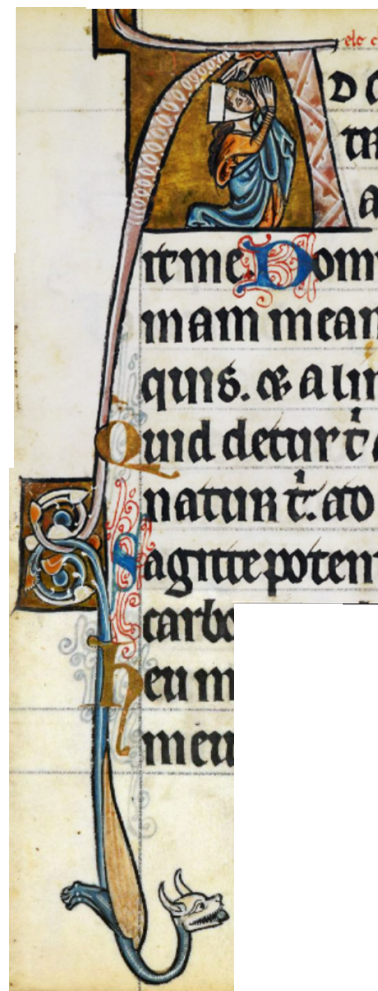 ele c
AD
TR
a
it me Dom
mam mean
quis. & a lin
Quid detur t̾ a
natur t̾. ad
Sagitte poten
carbo
heu m
meu